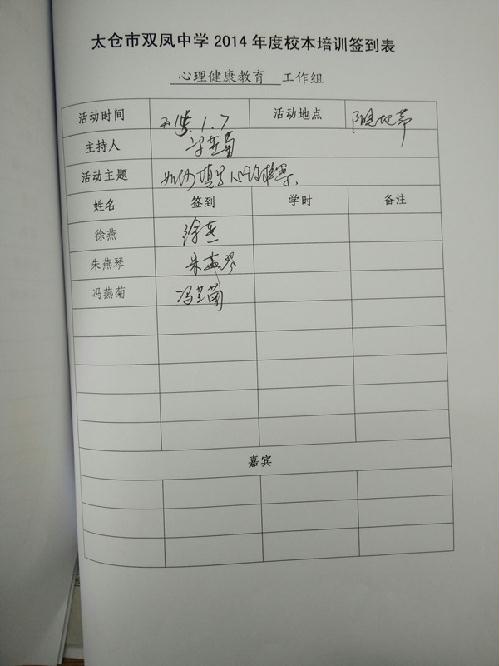 太仓市双凤中学2014年度校本培训签到表
心理健康教育 工作组
活动时间 2015.1.7 活动地点
主持人 冯燕菊
活动主题 如何填写心理档案
姓名 签到 学时 备注
徐燕 徐燕
朱燕琴 朱燕琴
冯燕菊 冯燕菊
嘉宾